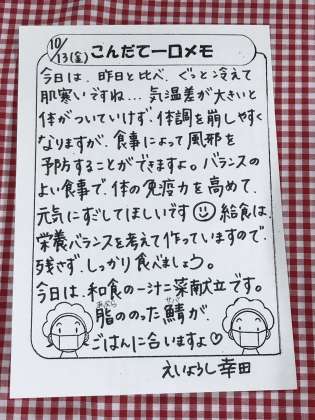 10/13(金) こんだて一口メモ
今日は、昨日と比べ、ぐっと冷えて
肌寒いですね…気温差が大きいと
体がついていけず、体調を崩しやすく
なりますが、食事によって風邪を
予防することができますよ。バランスの
よい食事で、体の免疫力を高めて、
元気にすごしてほしいです☺給食は、
栄養バランスを考えて作っていますので、
残さず、しっかり食べましょう。
今日は、和食の一汁二菜献立です。
脂(あぶら)ののった鯖(さば)が、
ごはんに合いますよ♡
えいようし 幸田